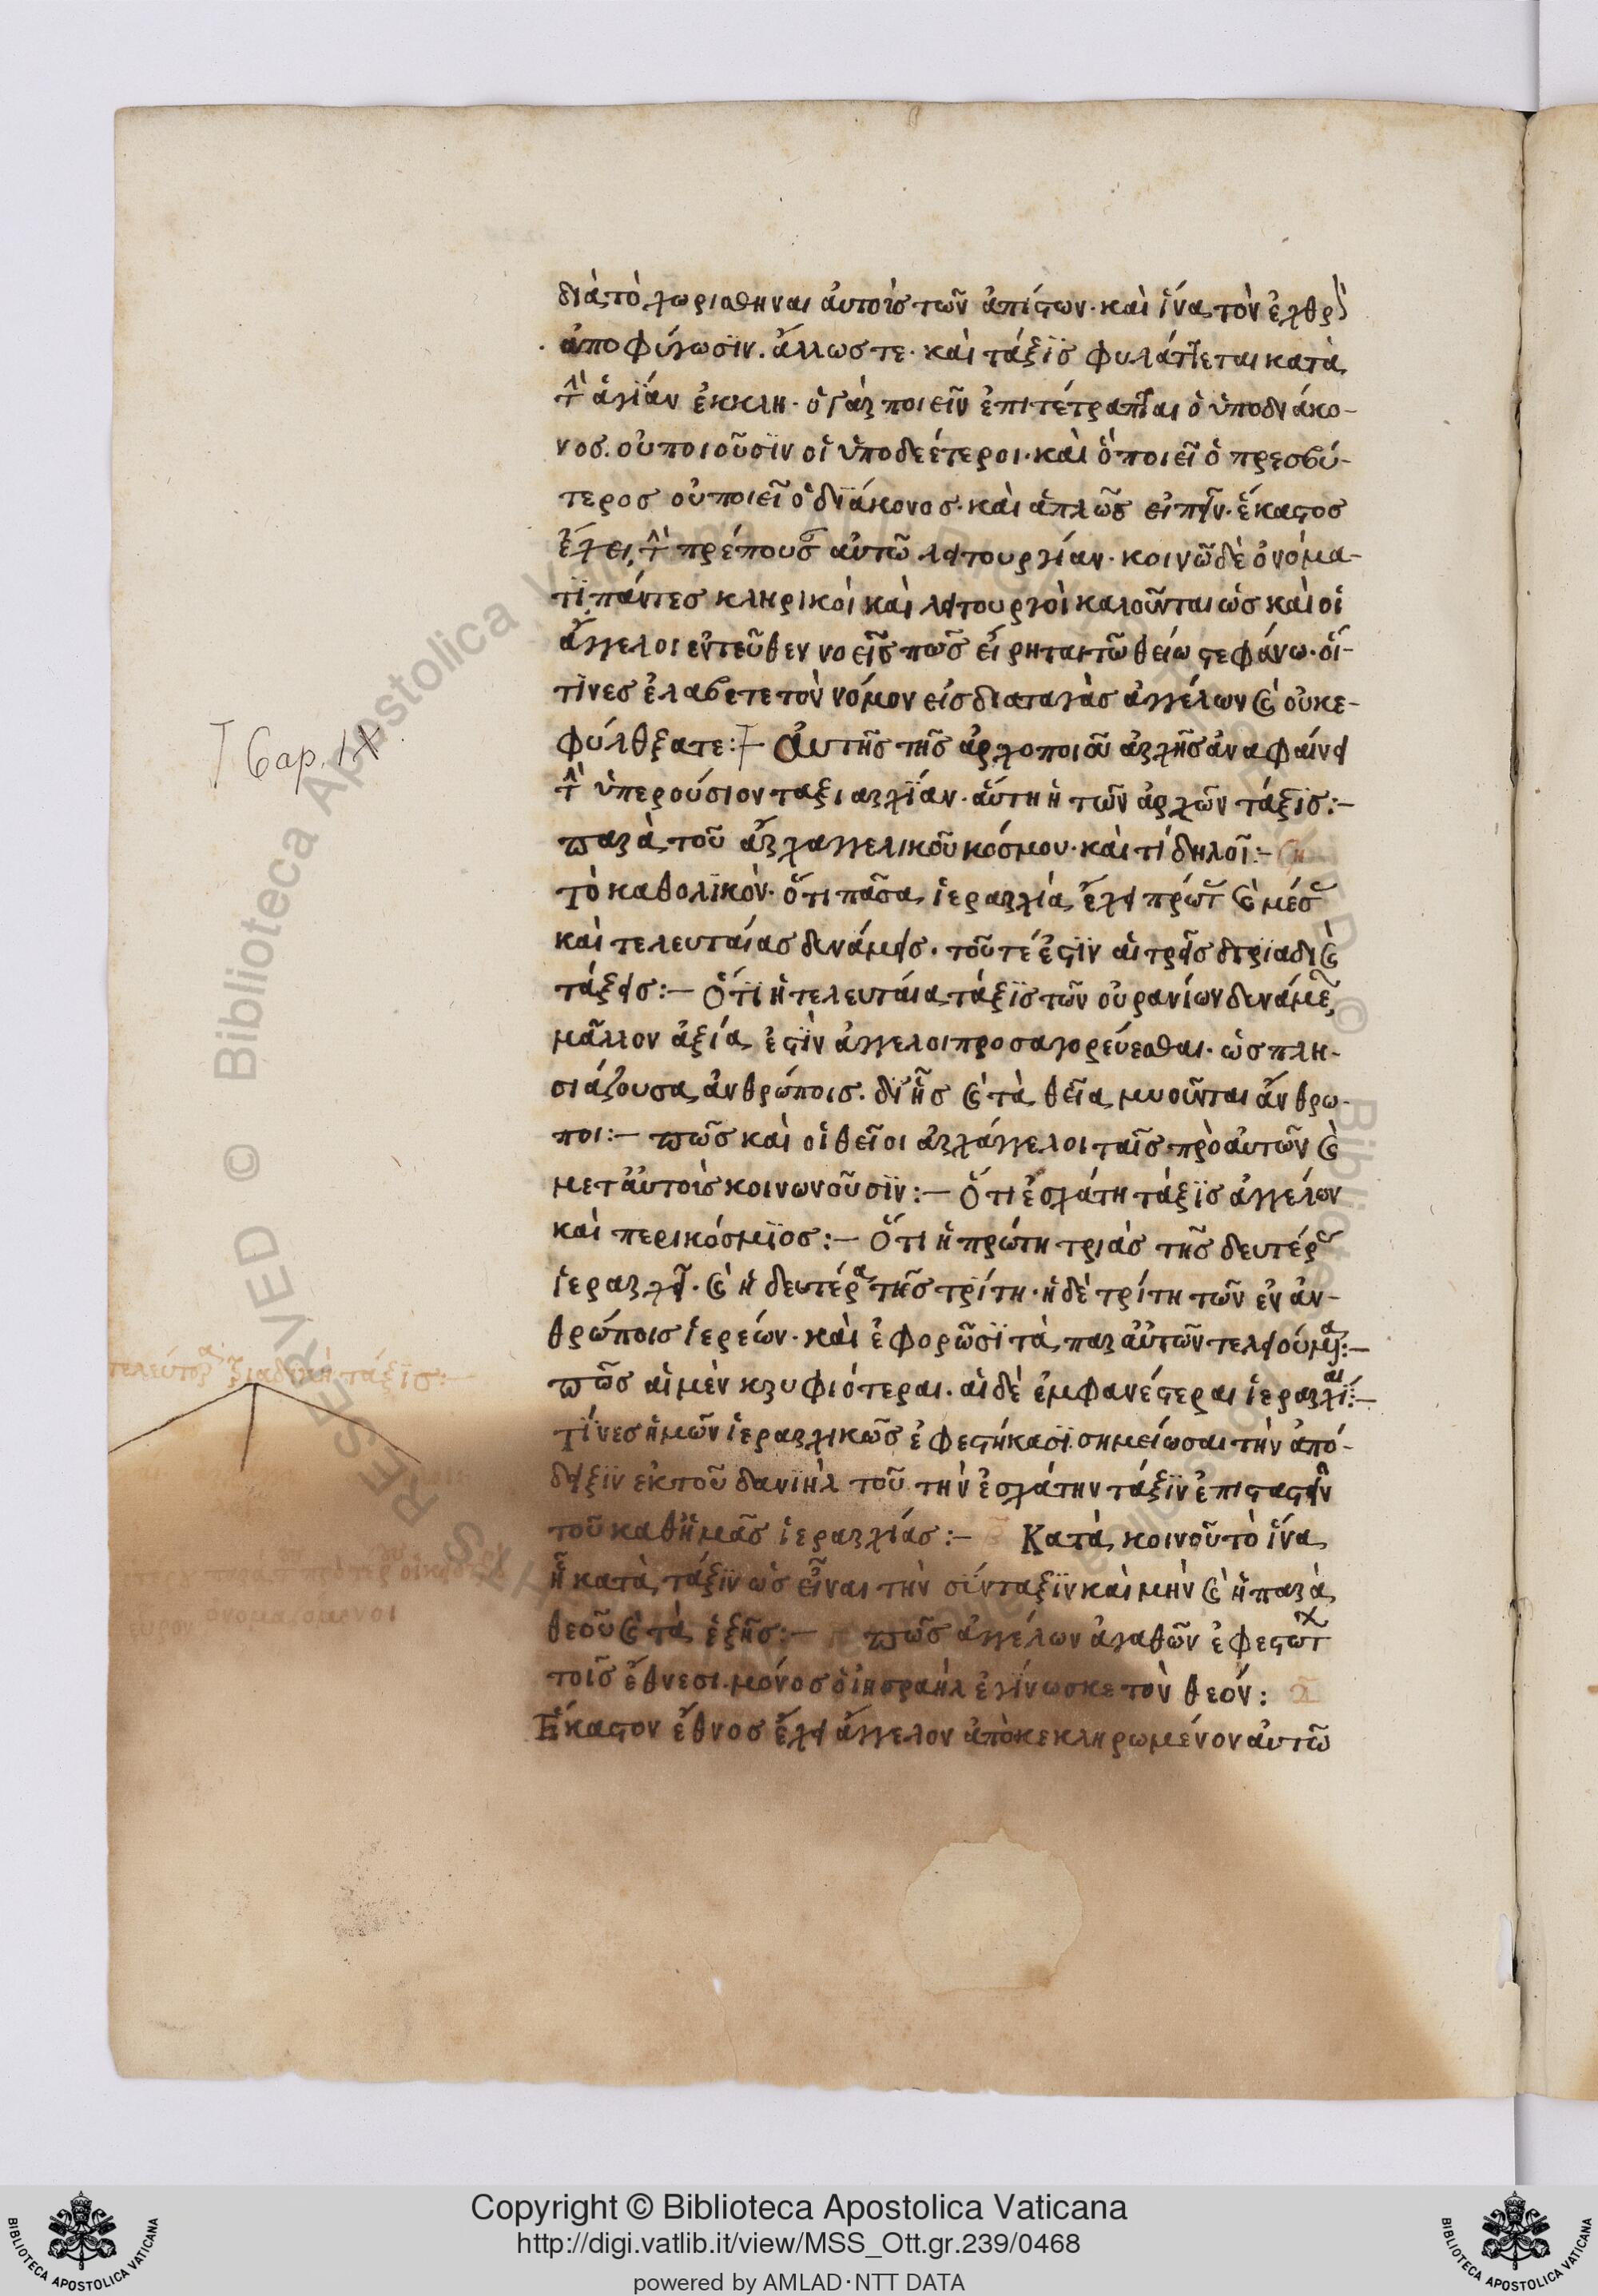 διὰ τὸ χωρισθηναι ἀυτοὶσ τῶν ἀπίστων· καὶ ἵνα τὸν ἐχθρὸν
ἀποφύγωσϊν. ἄλλωστε· καὶ τάξϊς φυλάττεται κατὰ
τὴν ἁγίαν ἐκκλη· ὁ γὰρ ποιεῖν ἐπιτέτραπται ὁ ὑποδιάκο-
νοσ. οὐ ποιοῦσϊν οἱ ὑποδεέτεροι· καὶ ὃ ποιεῖ ὁ πρεσβύ-
τεροσ οὐ ποιεῖ ὁ δϊάκονοσ· καὶ ἁπλῶς εἰπεῖν· ἕκαστοσ
ἔχει τὴν πρέπουσαν αὐτῶ λειτουργίαν· κοινῶ δὲ ὀνόμα-
τϊ πάντεσ κληρικοὶ καὶ λειτουργοὶ καλοῦνται ὡσ καὶ οἱ
ἄγγελοι ἐντεῦθεν νοεῖς πῶσ εἴρηται τῶ θείω στεφάνω· οἵ-
τϊνεσ ἐλαβετε τὸν νόμον εἰσ διαταγὰσ ἀγγέλων καὶ οὐκ ε-
φύλάξατε:- Ἀυτῆσ τῆσ ἀρχοποιοῦ ἀρχῆσ ἀναφαίνει
τὴν ὑπερούσιον ταξιαρχΐαν· ἅυτη ἡ τῶν ἀρχῶν τάξϊς:-
παρὰ τοῦ ἀρχαγγελικοῦ κόσμου· καὶ τί δηλοῖ:-
τὸ καθολϊκὸν· ὅτι πᾶσα ἱεραρχία ἔχει πρώτας καὶ μέσας
καὶ τελευταίασ δυνάμεισ· τοῦτέἐστϊν αἱ τρεῖσ τριαδικαὶ
τάξεισ:- Ὅτϊ ἡ τελευτάια τάξϊς τῶν οὐρανίων δυνάμεων
μᾶλλον ἀξία ἐστῒν ἀγγελοι προσαγορέυεσθαι· ὡσ πλη-
σιάζουσα ἀνθρώποισ. δϊ ἧσ καὶ τὰ θεῖα μυοῦνται ἄνθρω-
ποι:- πῶσ καὶ οἱ θεῖοι ἀρχάγγελοι ταῖσ πρὸ αὐτῶν καὶ
μετ ἀυτοὶσ κοινωνοῦσϊν:- Ὅτι ἐσχάτη τάξϊς ἀγγέλων
καὶ περικόσμϊοσ:- Ὅτι ἡ πρώτη τριὰσ τῆσ δευτέρας
ἱεραρχεῖ· καὶ ἡ δευτέρα τῆσ τρίτη· ἡ δὲ τρίτη τῶν ἐν ἀν-
θρώποισ ἱερέων· καὶ ἐφορῶσϊ τὰ παρ αὐτῶν τελούμενα:-
πῶσ αἱ μὲν κρυφιότεραι. αἱ δὲ ἐμφανέστεραι ἱεραρχίαι:-
τΐνεσ ἡμῶν ἱεραρχικῶσ ἐφεστήκασϊ. σημείωσαι τὴν ἀπό-
δειξϊν ἐκ τοῦ δανϊὴλ τοῦ τὴν ἐσχάτην τάξϊν ἐπιστατεῖν
τοῦ καθ ἡμᾶσ ἱεραρχίασ:- Κατὰ κοινοῦ τὸ ἵνα
ἦ κατὰ τάξϊν ὡσ εἶναι τὴν σύνταξϊν καὶ μὴν καὶ ἡ παρὰ
θεοῦ καὶ τὰ ἑξῆσ:- πῶσ ἀγγέλων ἀγαθῶν ἐφεστώτων
τοῖσ ἔθνεσι. μόνοσ ὁ ἰησραὴλ ἐγΐνωσκε τὸν θεόν:
Ἕκαστον ἔθνοσ ἔχει ἄγγελον ἀποκεκληρωμένον αὐτῶ
Cap. IX.
τριαδικὴ τάξϊς:-
ὀνομαζόμενοι
Copyright © Biblioteca Apostolica Vaticana
http://digi.vatlib.it/view/MSS_Ott.gr.239/0468
powered by AMLAD·NTT DATA
BIBLIOTECA APOSTOLICA VATICANA
BIBLIOTECA APOSTOLICA VATICANA